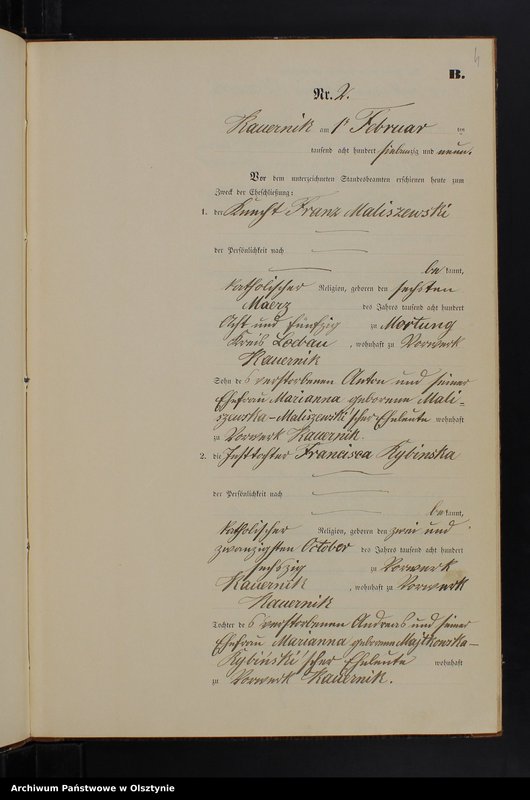 4
B.
Nr. 2.
Kauernik am 1ten Februar
tausend acht hundert siebenzig und neun.
Vor dem unterzeichneten Standesbeamten erschienen heute zum
Zweck der Eheschließung:
1. der Knecht Franz Maliszewski
der Persönlichkeit nach
be kannt,
katholischer Religion, geboren den sechsten
Maerz des Jahres tausend acht hundert
Acht und fünfzig zu Mortung
Kreis Loebau, wohnhaft zu Vorwerk
Kauernik
Sohn des verstorbenen Anton und seiner
Ehefrau Marianna geborenen Mali-
szewska-Maliszewski'scher Eheleute wohnhaft
zu Vorwerk Kauernik.
2. die Francisca Kybinska
der Persönlichkeit nach
be kannt,
katholischer Religion, geboren den zwei und
zwanzigsten October des Jahres tausend acht hundert
sechszig zu Vorwerk
Kauernik, wohnhaft zu Vorwerk
Kauernik
Tochter des verstorbenen Andreas und seiner
Ehefrau Marianna geborenen Majtkowska-
Kybiński'scher Eheleute wohnhaft
zu Vorwerk Kauernik.
Archiwum Państwowe w Olsztynie